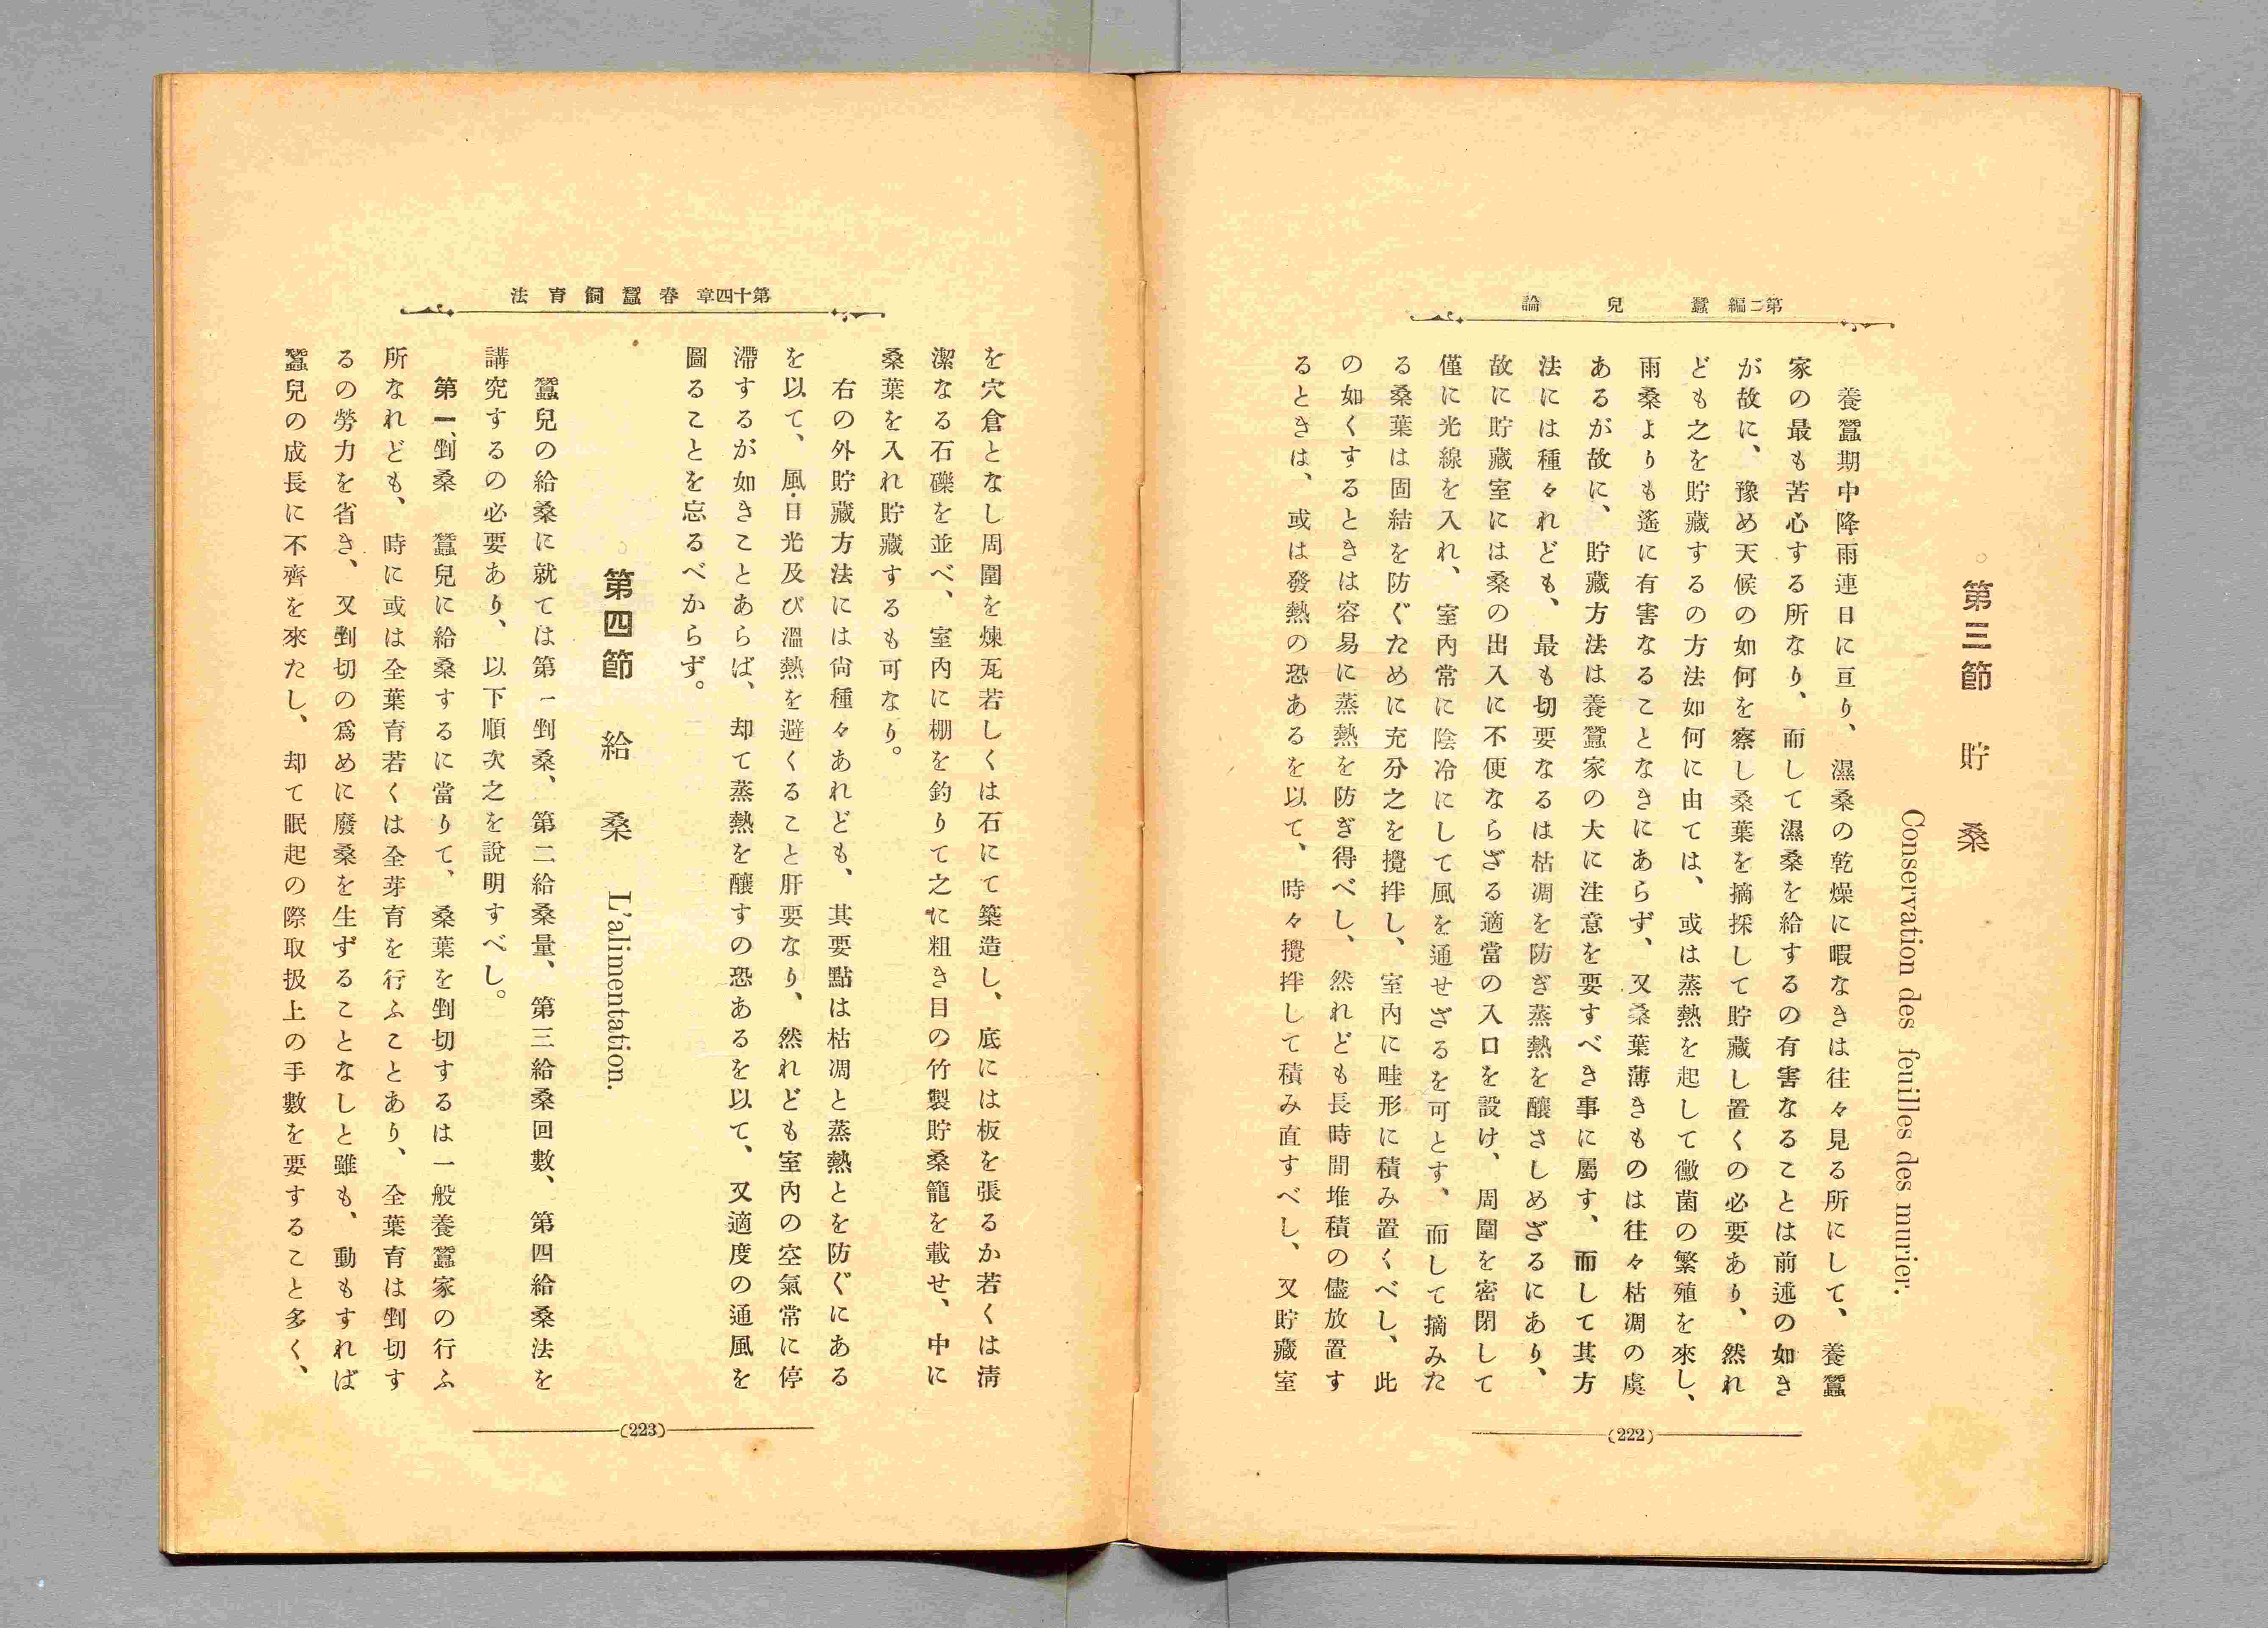 第二編　蠶兒論
第三節　貯桑
Conservation des feuilles des murier.
養蠶期中降雨連日に亘り、濕桑の乾燥に暇なきは往々見る所にして、養蠶
家の最も苦心する所なり、而して濕桑を給するの有害なることは前述の如き
が故に、豫め天候の如何を察し桑葉を摘採して貯藏し置くの必要あり、然れ
ども之を貯藏するの方法如何に由ては、或は蒸熱を起して黴菌の繁殖を來し、
雨桑よりも遙に有害なることなきにあらず、又桑葉薄きものは往々枯凋の虞
あるが故に、貯藏方法は養蠶家の大に注意を要すべき事に屬す、而して其方
法には種々れども、最も切要なるは枯凋を防ぎ蒸熱を釀さしめざるにあり、
故に貯藏室には桑の出入に不便ならざる適當の入口を設け、周圍を密閉して
僅に光線を入れ、室內常に陰冷にして風を通せざるを可とす、而して摘みた
る桑葉は固結を防ぐために充分之を攪拌し、室內に畦形に積み置くべし、此
の如くするときは容易に蒸熱を防ぎ得べし、然れども長時間堆積の儘放置す
るときは、或は發熱の恐あるを以て、時々攪拌して積み直すべし、又貯藏室
(222)
第十四章　春蠶飼育法
を穴倉となし周圍を煉瓦若しくは石にて築造し、底には板を張るか若くは淸
潔なる石礫を並べ、室內に棚を釣りて之に粗き目の竹製貯桑籠を載せ、中に
桑葉を入れ貯藏するも可なり。
右の外貯藏方法には尙種々あれども、其要點は枯凋と蒸熱とを防ぐにある
を以て、風・日光及び溫熱を避くること肝要なり、然れども室內の空氣常に停
滯するが如きことあらば、却て蒸熱を釀すの恐あるを以て、又適度の通風を
圖ることを忘るべからず。
第四節　給桑　L'alimentation.
蠶兒の給桑に就ては第一剉桑、第二給桑量、第三給桑回數、第四給桑法を
講究するの必要あり、以下順次之を說明すべし。
第一、剉桑　蠶兒に給桑するに當りて、桑葉を剉切するは一般養蠶家の行ふ
所なれども、時に或は全葉育若くは全芽育を行ふことあり、全葉育は剉切す
るの勞力を省き、又剉切の爲めに廢桑を生ずることなしと雖も、動もすれば
蠶兒の成長に不齊を來たし、却て眠起の際取扱上の手數を要すること多く、
(223)